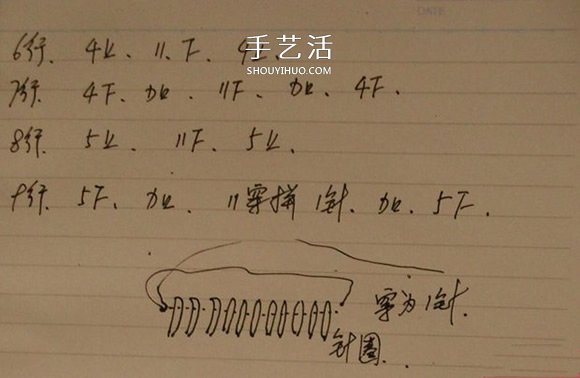 手艺活
SHOUYIHUO.COM
6行、4上、11下、4上、
7行、4下、加、11下、加、4下、
8行、5上、11下、5上、
9行、5下、加、11穿拼1针、加、5下、
穿为1针、
针圈、